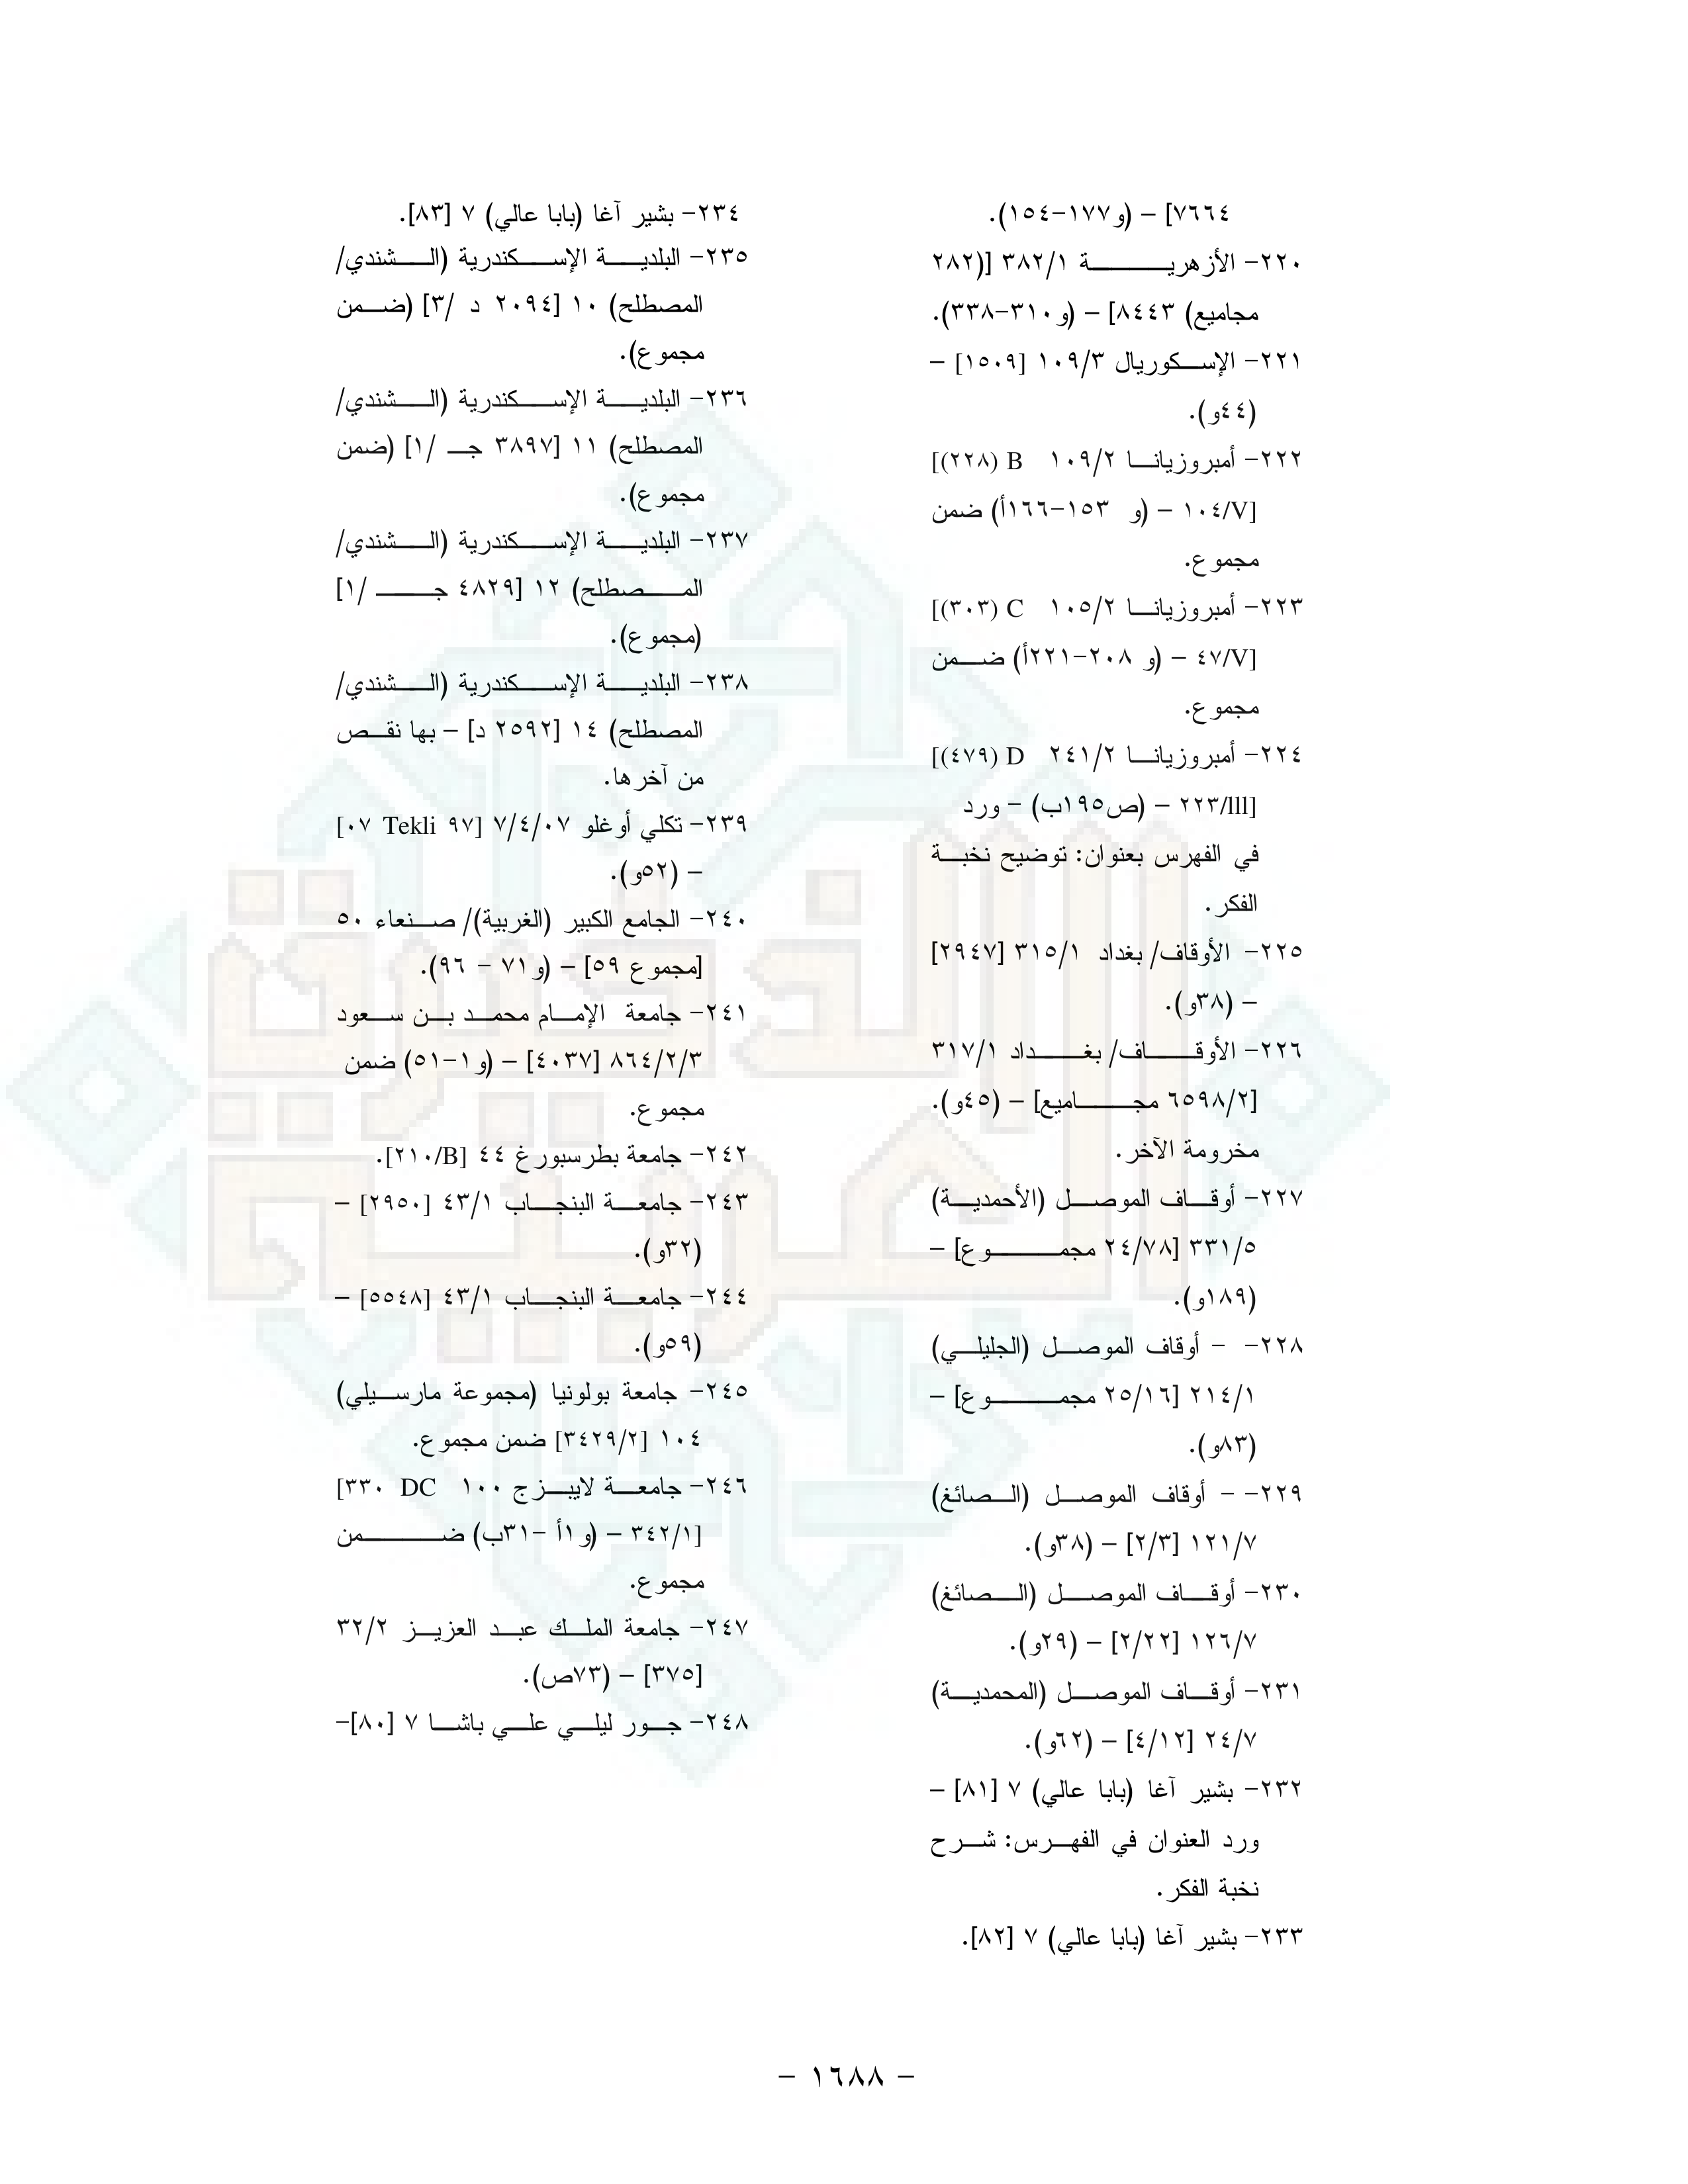 ٧٦٦٤] – (و١٧٧-١٥٤).
٢٢٠- الأزهرية ٣٨٢/١ [(٢٨٢
مجاميع) ٨٤٤٣] – (و٣١٠-٣٣٨).
٢٢١- الإسكوريال ١٠٩/٣ [١٥٠٩] –
(٤٤و).
٢٢٢- أمبروزيانا ١٠٩/٢ B (٢٢٨)]
[١٠٤/V – (و ١٥٣-١٦٦أ) ضمن
مجموع.
٢٢٣- أمبروزيانا ١٠٥/٢ C (٣٠٣)]
[٤٧/V – (و ٢٠٨-٢٢١أ) ضمن
مجموع.
٢٢٤- أمبروزيانا ٢٤١/٢ D (٤٧٩)]
[٢٢٣/lll – (ص١٩٥ب) - ورد
في الفهرس بعنوان: توضيح نخبة
الفكر.
٢٢٥- الأوقاف/ بغداد ٣١٥/١ [٢٩٤٧]
– (٣٨و).
٢٢٦- الأوقاف/ بغداد ٣١٧/١
[٦٥٩٨/٢ مجاميع] – (٤٥و).
مخرومة الآخر.
٢٢٧- أوقاف الموصل (الأحمدية)
٣٣١/٥ [٢٤/٧٨ مجموع] –
(١٨٩و).
٢٢٨- - أوقاف الموصل (الجليلي)
٢١٤/١ [٢٥/١٦ مجموع] –
(٨٣و).
٢٢٩- - أوقاف الموصل (الصائغ)
١٢١/٧ [٢/٣] – (٣٨و).
٢٣٠- أوقاف الموصل (الصائغ)
١٢٦/٧ [٢/٢٢] – (٢٩و).
٢٣١- أوقاف الموصل (المحمدية)
٢٤/٧ [٤/١٢] – (٦٢و).
٢٣٢- بشير آغا (بابا عالي) ٧ [٨١] –
ورد العنوان في الفهرس: شرح
نخبة الفكر.
٢٣٣- بشير آغا (بابا عالي) ٧ [٨٢].
٢٣٤- بشير آغا (بابا عالي) ٧ [٨٣].
٢٣٥- البلدية الإسكندرية (الشندي/
المصطلح) ١٠ [٢٠٩٤ د /٣] (ضمن
مجموع).
٢٣٦- البلدية الإسكندرية (الشندي/
المصطلح) ١١ [٣٨٩٧ جـ /١] (ضمن
مجموع).
٢٣٧- البلدية الإسكندرية (الشندي/
المصطلح) ١٢ [٤٨٢٩ جـ /١]
(مجموع).
٢٣٨- البلدية الإسكندرية (الشندي/
المصطلح) ١٤ [٢٥٩٢ د] – بها نقص
من آخرها.
٢٣٩- تكلي أوغلو ٧/٤/٠٧ [٠٧ Tekli ٩٧]
– (٥٢و).
٢٤٠- الجامع الكبير (الغربية)/ صنعاء ٥٠
[مجموع ٥٩] – (و٧١ - ٩٦).
٢٤١- جامعة الإمام محمد بن سعود
٨٦٤/٢/٣ [٤٠٣٧] – (و١-٥١) ضمن
مجموع.
٢٤٢- جامعة بطرسبورغ ٤٤ [٢١٠/B].
٢٤٣- جامعة البنجاب ٤٣/١ [٢٩٥٠] –
(٣٢و).
٢٤٤- جامعة البنجاب ٤٣/١ [٥٥٤٨] –
(٥٩و).
٢٤٥- جامعة بولونيا (مجموعة مارسيلي)
١٠٤ [٣٤٢٩/٢] ضمن مجموع.
٢٤٦- جامعة لايبزج ١٠٠ DC ٣٣٠]
[٣٤٢/١ – (و١أ -٣١ب) ضمن
مجموع.
٢٤٧- جامعة الملك عبد العزيز ٣٢/٢
[٣٧٥] – (٧٣ص).
٢٤٨- جور ليلي علي باشا ٧ [٨٠]-
- ١٦٨٨ -